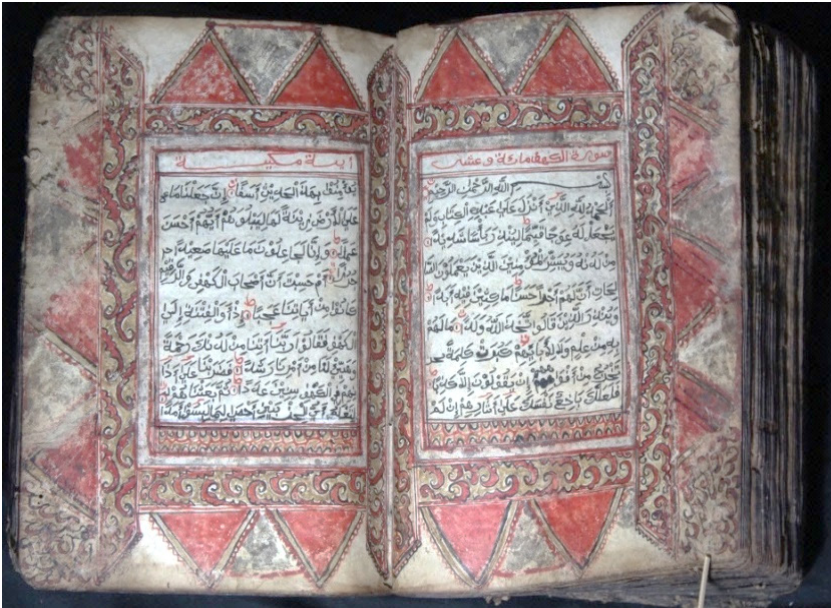 سورة الكهف مائة وعشر
بسم الله الرحمن الرحيم
الحمد لله الذي أنزل على عبده الكتاب ولم
يجعل له عوجا قيما لينذر بأسا شديدا
من لدنه ويبشر المؤمنين الذين يعملون الصا
لحات أن لهم أجرا حسنا ماكثين فيه أبدا
وينذر الذين قالوا اتخذ الله ولدا ما لهم
به من علم ولا لآبائهم كبرت كلمة تخر
تخرج من إن يقولون إلا كذبا
فلعلك باخع نفسك على آثارهم إن لم
آية مكية
يؤمنوا بهذا الحديث أسفا إنا جعلنا ما على
على الأرض زينة لها لنبلوهم أيهم أحسن
عملا وإنا لجاعلون ما عليها صعيدا جر
جرزا أم حسبت أن أصحاب الكهف والرقيم
كانوا من آياتنا عجبا إذ أوى الفتية إلى
الكهف فقالوا ربنا آتنا من لدنك رحمة
وهيئ لنا من أمرنا رشدا فضربنا على آذا
نهم في الكهف سنين عددا ثم بعثناهم
لنعلم أي الحزبين أحصى لما لبثوا أمدا